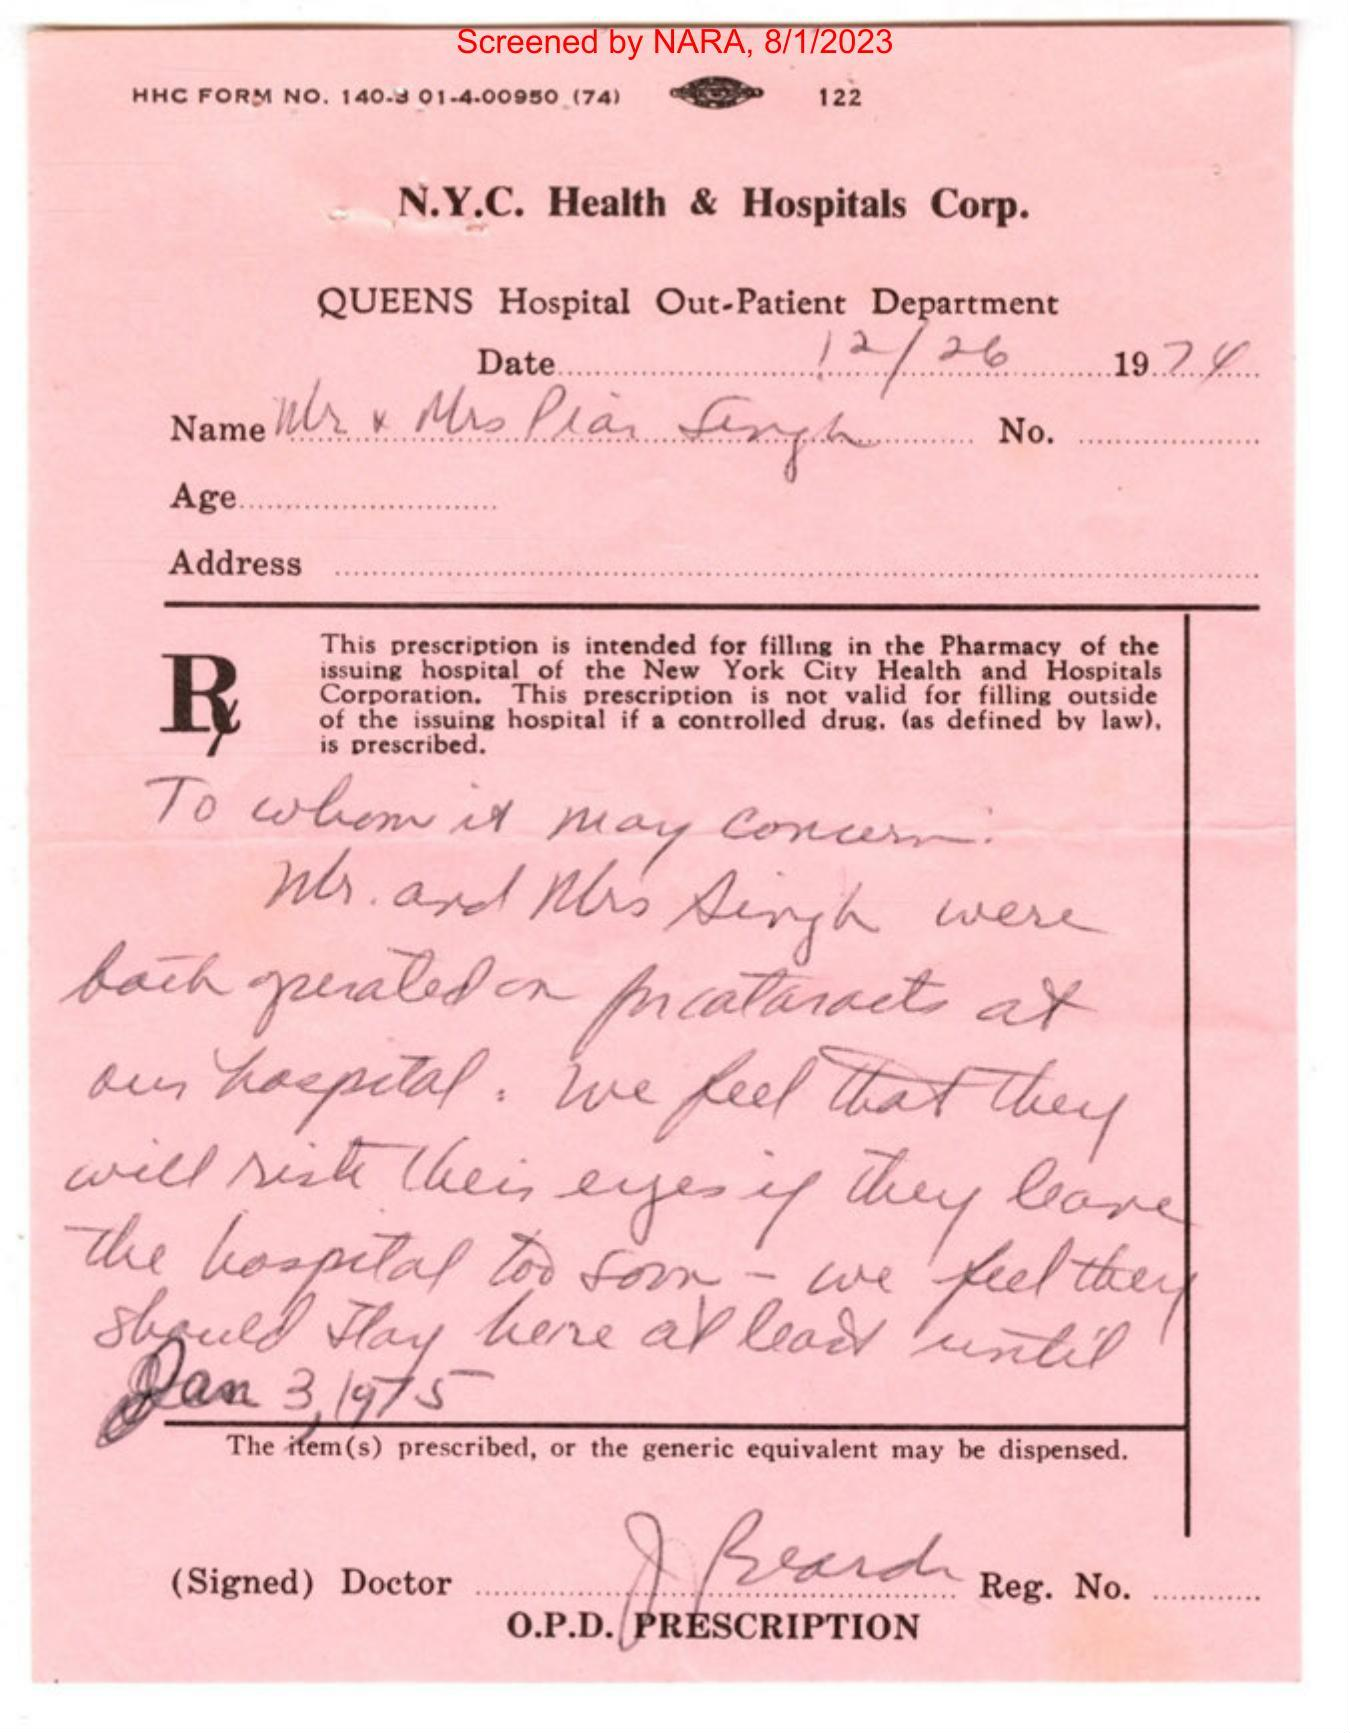 Screened by NARA, 8/1/2023
HHC FORM NO. 140-3 01-4-00950 (74) 122
N.Y.C. Health & Hospitals Corp.
QUEENS Hospital Out-Patient Department
Date 12/26 1974
Name Mr & Mrs Piar Singh No.
Age
Address
Rx
This prescription is intended for filling in the Pharmacy of the
issuing hospital of the New York City Health and Hospitals
Corporation. This prescription is not valid for filling outside
of the issuing hospital if a controlled drug, (as defined by law),
is prescribed.
To whom it may concern:
Mr. and Mrs Singh were
both operated on for cataracts at
our hospital. We feel that they
will risk their eyes if they leave
the hospital too soon - we feel they
should stay here at least until
Jan 3, 1975
The item(s) prescribed, or the generic equivalent may be dispensed.
(Signed) Doctor J Reg. No.
O.P.D. PRESCRIPTION